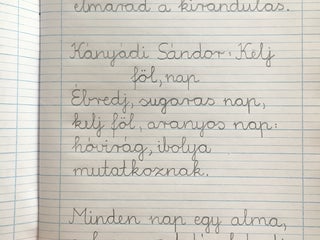 elmarad a kirándulás.
Kányádi Sándor: Kelj
föl, nap
Ébredj, sugaras nap,
kelj föl, aranyos nap:
hóvirág, ibolya
mutatkoznak.
Minden nap egy alma,